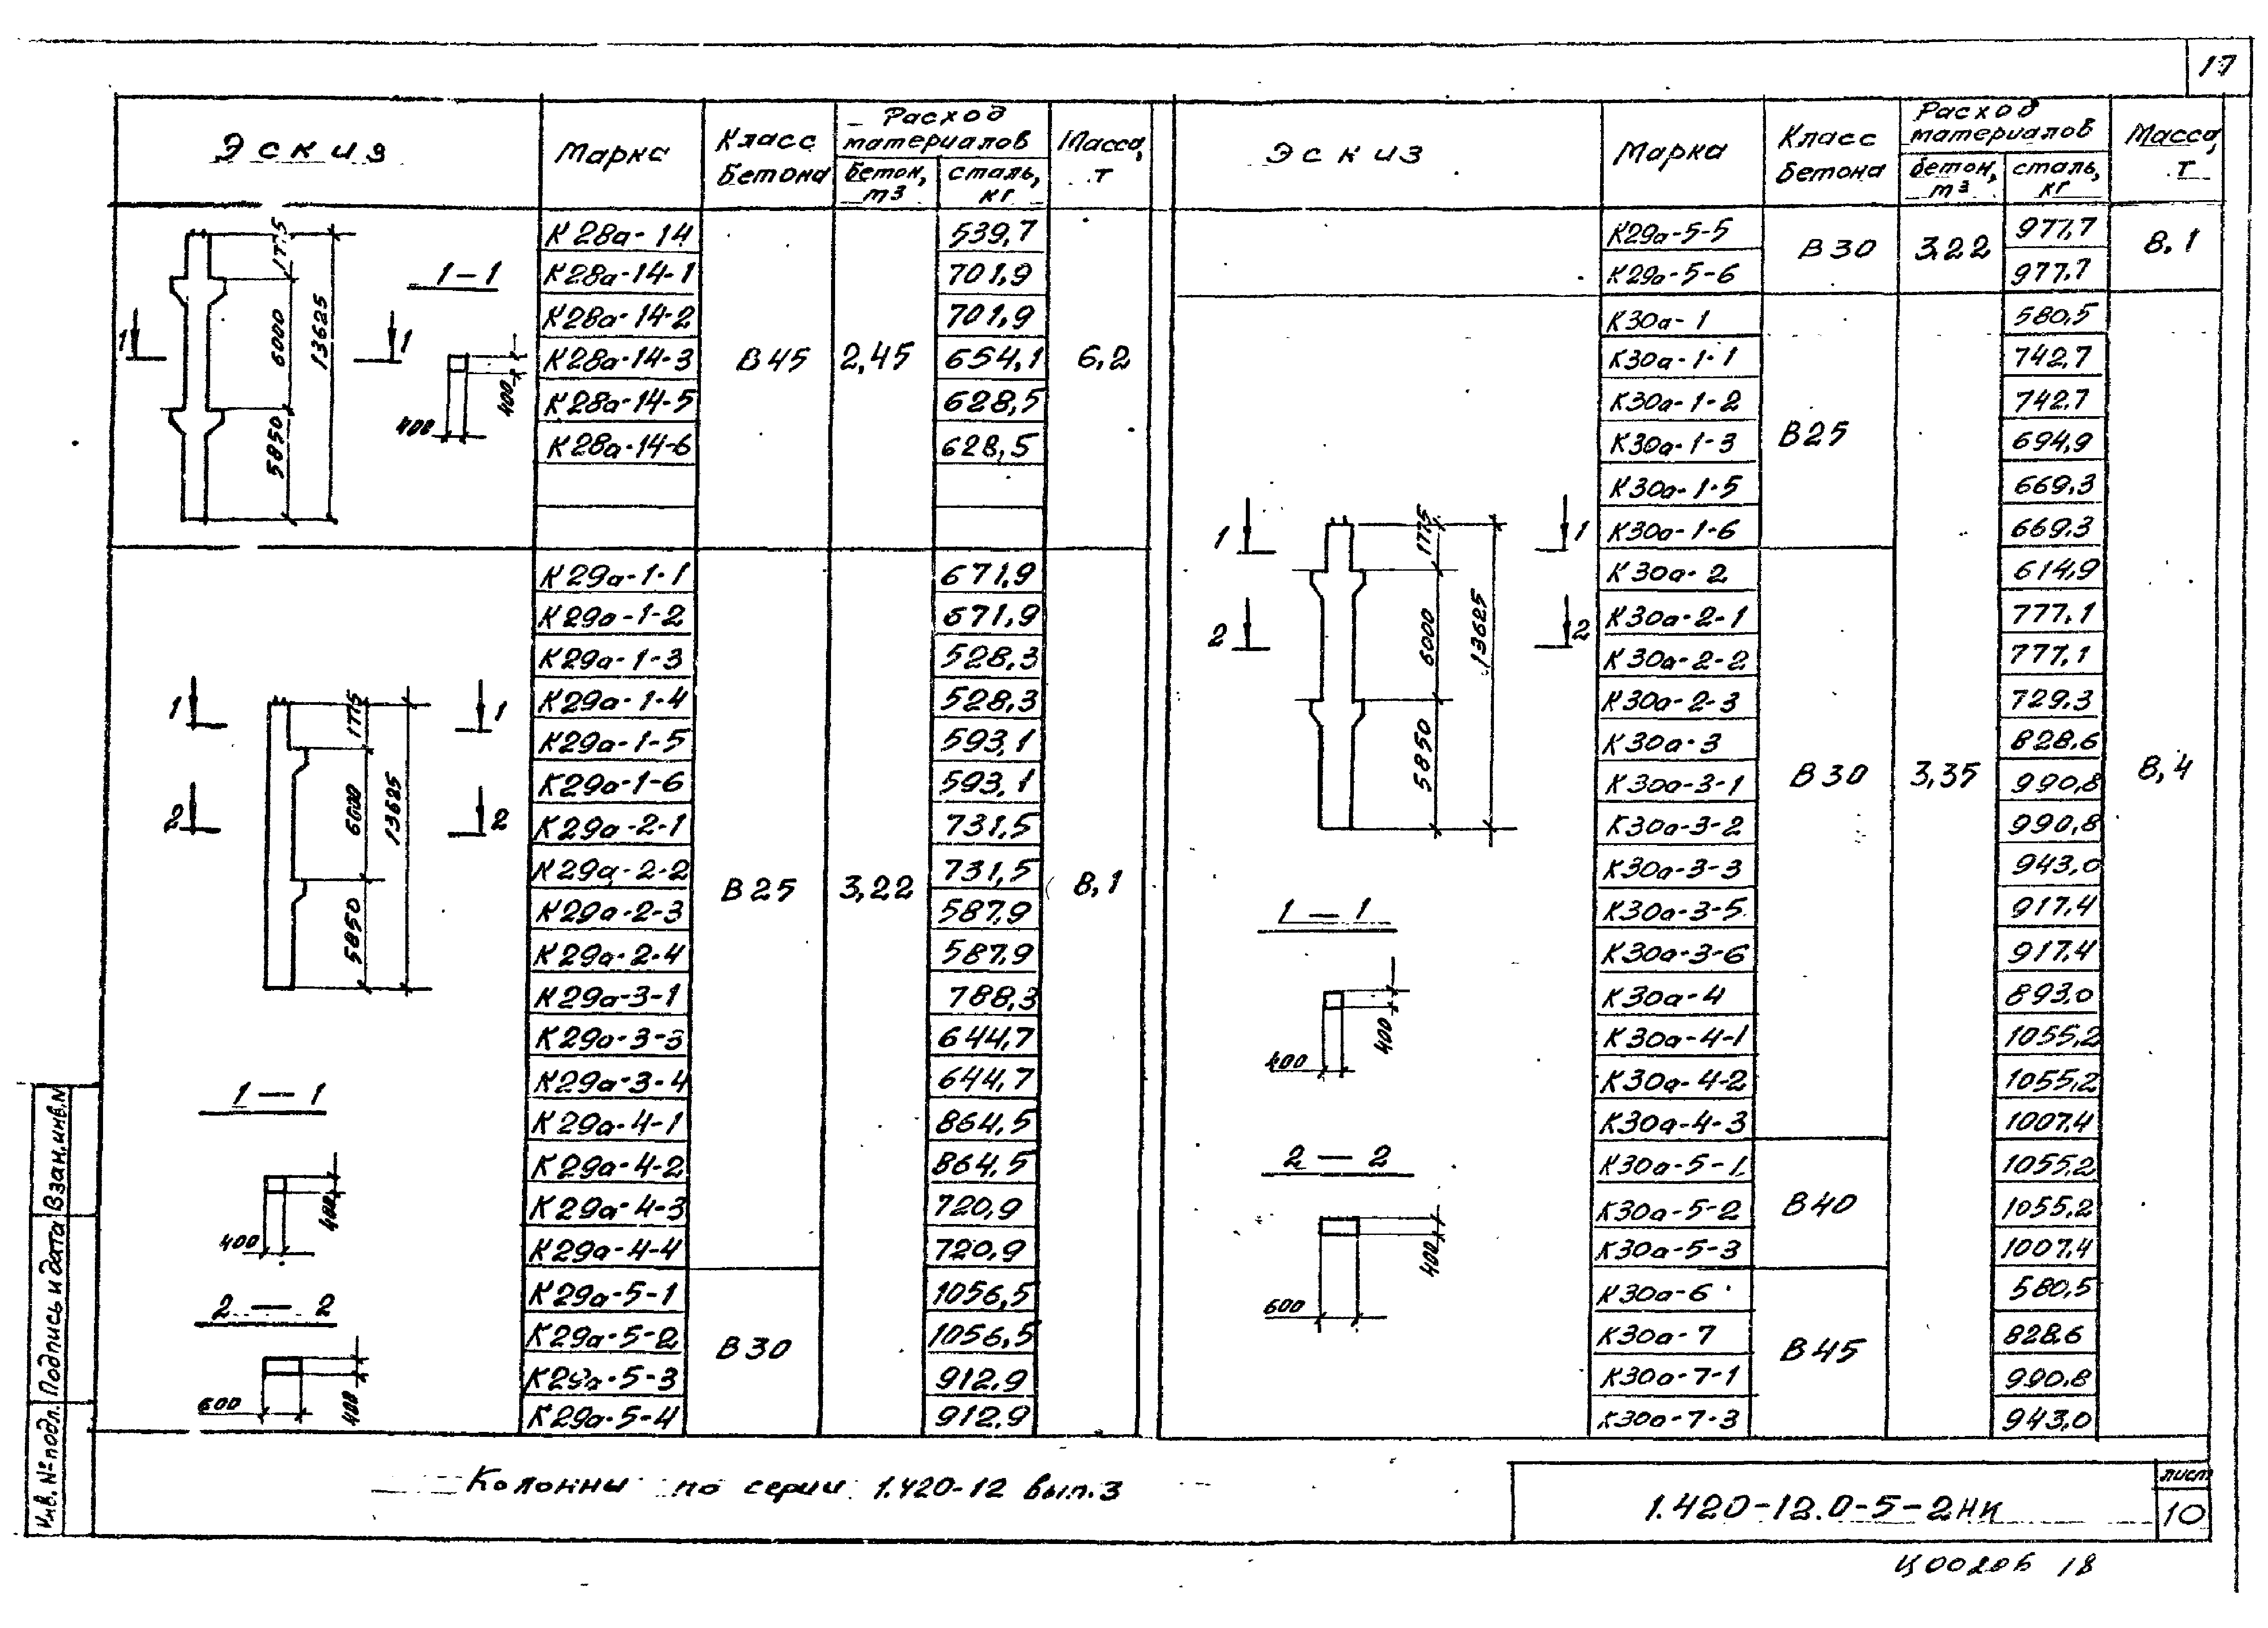 17
Эскиз Марка Класс бетона Расход материалов бетон, м3 сталь, кг Масса, т
К28а-14 539,7
К28а-14-1 701,9
К28а-14-2 701,9
К28а-14-3 В45 2,45 654,1 6,2
К28а-14-5 628,5
К28а-14-6 628,5
1775
6000
5850
13625
1 1
1-1
400
400
К29а-1-1 671,9
К29а-1-2 671,9
К29а-1-3 528,3
К29а-1-4 528,3
К29а-1-5 593,1
К29а-1-6 593,1
К29а-2-1 731,5
К29а-2-2 731,5
В25 3,22 8,1
К29а-2-3 587,9
К29а-2-4 587,9
К29а-3-1 788,3
К29а-3-3 644,7
К29а-3-4 644,7
К29а-4-1 864,5
К29а-4-2 864,5
К29а-4-3 720,9
К29а-4-4 720,9
К29а-5-1 1056,5
К29а-5-2 1056,5
В30
К29а-5-3 912,9
К29а-5-4 912,9
1 1
2 2
1775
6000
5850
13625
1-1
400
400
2-2
600
400
Эскиз Марка Класс бетона Расход материалов бетон, м3 сталь, кг Масса, т
К29а-5-5 977,7
В30 3,22 8,1
К29а-5-6 977,7
К30а-1 580,5
К30а-1-1 742,7
К30а-1-2 742,7
К30а-1-3 В25 694,9
К30а-1-5 669,3
К30а-1-6 669,3
К30а-2 614,9
К30а-2-1 777,1
К30а-2-2 777,1
К30а-2-3 729,3
К30а-3 828,6
К30а-3-1 В30 3,35 990,8 8,4
К30а-3-2 990,8
К30а-3-3 943,0
К30а-3-5 917,4
К30а-3-6 917,4
К30а-4 893,0
К30а-4-1 1055,2
К30а-4-2 1055,2
К30а-4-3 1007,4
К30а-5-1 1055,2
К30а-5-2 В40 1055,2
К30а-5-3 1007,4
К30а-6 580,5
К30а-7 828,6
В45
К30а-7-1 990,8
К30а-7-3 943,0
1 1
2 2
1775
6000
5850
13625
1-1
400
400
2-2
600
400
Колонны по серии 1.420-12 вып.3
1.420-12.0-5-2НК
лист
10
Ц00206 18
Инв. № подл. Подпись и дата Взам.инв.N